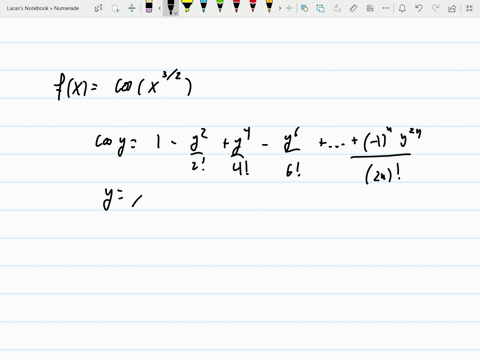 Lucas's Notebook » Numerade
f(x) = cos(x^{3/2})
cos y = 1 - y^2/2! + y^4/4! - y^6/6! + ... + (-1)^n y^{2n}/(2n)!
y =